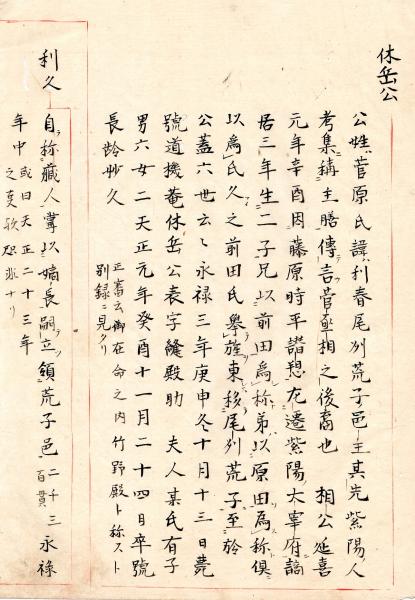 休岳公
公姓菅原氏諱利春尾州荒子邑主其先紫陽人
考集稱主膳傳言菅丞相之後裔也 相公延喜
元年辛酉因藤原時平譛愬左遷紫陽大宰府謫
居三年生二子兄以前田爲称弟以原田爲称俱
以爲氏久之前田氏擧族東移尾州荒子至於
公蓋六世云々永禄三年庚申冬十月十三日薨
號道機菴休岳公表字縫殿助 夫人某氏有子
男六女二天正元年癸酉十一月二十四日卒號
長齡妙久
正畜云御在命之内竹野殿ト称スト
別録ニ見タリ
利久
自称藏人嘗以嫡長嗣立領荒子邑 二千三百貫 永祿
年中 或曰天正二十三年
之㕝歟恐非ナリ